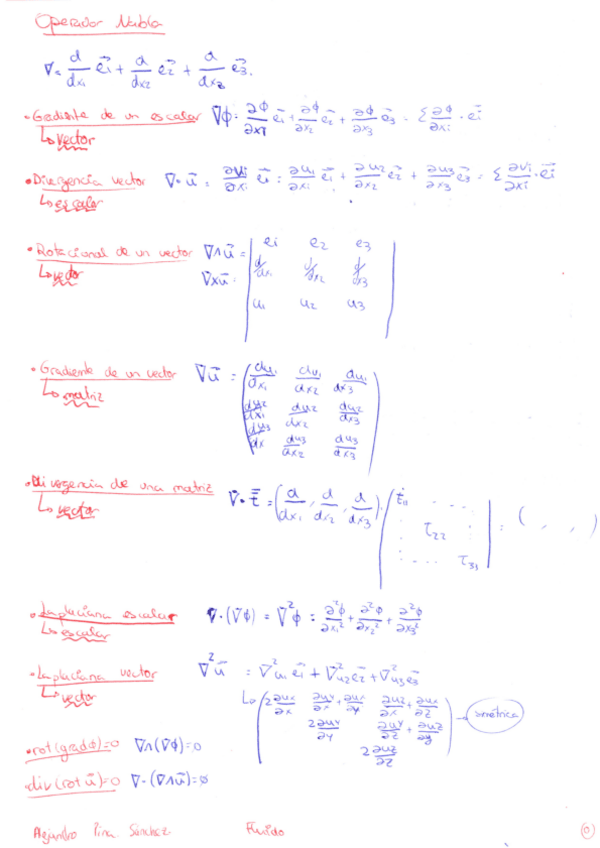 Operador Nabla
∇ = d/dx₁ e⃗₁ + d/dx₂ e⃗₂ + d/dx₃ e⃗₃.
• Gradiente de un escalar ∇ϕ = ∂ϕ/∂x1 e⃗₁ + ∂ϕ/∂x₂ e⃗₂ + ∂ϕ/∂x₃ e⃗₃ = Σ ∂ϕ/∂xi · e⃗i
↳ vector
• Divergencia vector ∇·u⃗ = ∂vi/∂xi e⃗i = ∂u₁/∂x₁ e⃗₁ + ∂u₂/∂x₂ e⃗₂ + ∂u₃/∂x₃ e⃗₃ = Σ ∂vi/∂xi · e⃗i
↳ escalar
• Rotacional de un vector ∇∧u⃗ = | e₁ e₂ e₃
↳ vector ∇×u⃗ = d/dx₁ d/dx₂ d/dx₃
u₁ u₂ u₃ |
• Gradiente de un vector ∇u⃗ = ( du₁/dx₁ du₁/dx₂ du₁/dx₃
↳ matriz du₂/dx₁ du₂/dx₂ du₂/dx₃
du₃/dx du₃/dx₂ du₃/dx₃ )
• Divergencia de una matriz ∇·τ̿ = (d/dx₁, d/dx₂, d/dx₃) · ( . . . .
↳ vector τ₂₂ = ( , , )
. . . . )
• Laplaciana escalar ∇·(∇ϕ) = ∇²ϕ = ∂²ϕ/∂x₁² + ∂²ϕ/∂x₂² + ∂²ϕ/∂x₃²
↳ escalar
• Laplaciana vector ∇²u⃗ = ∇²u₁ e⃗₁ + ∇²u₂ e⃗₂ + ∇²u₃ e⃗₃
↳ vector ↳ ( 2 ∂ux/∂x ∂uy/∂x + ∂ux/∂y ∂uz/∂x + ∂ux/∂z
2 ∂uy/∂y ∂uy/∂z + ∂uz/∂y → simétrica
2 ∂uz/∂z )
• rot(gradϕ)=0 ∇∧(∇ϕ)=0
• div(rot u⃗)=0 ∇·(∇∧u⃗)=ø
Alejandro Pina Sánchez Fluido 0